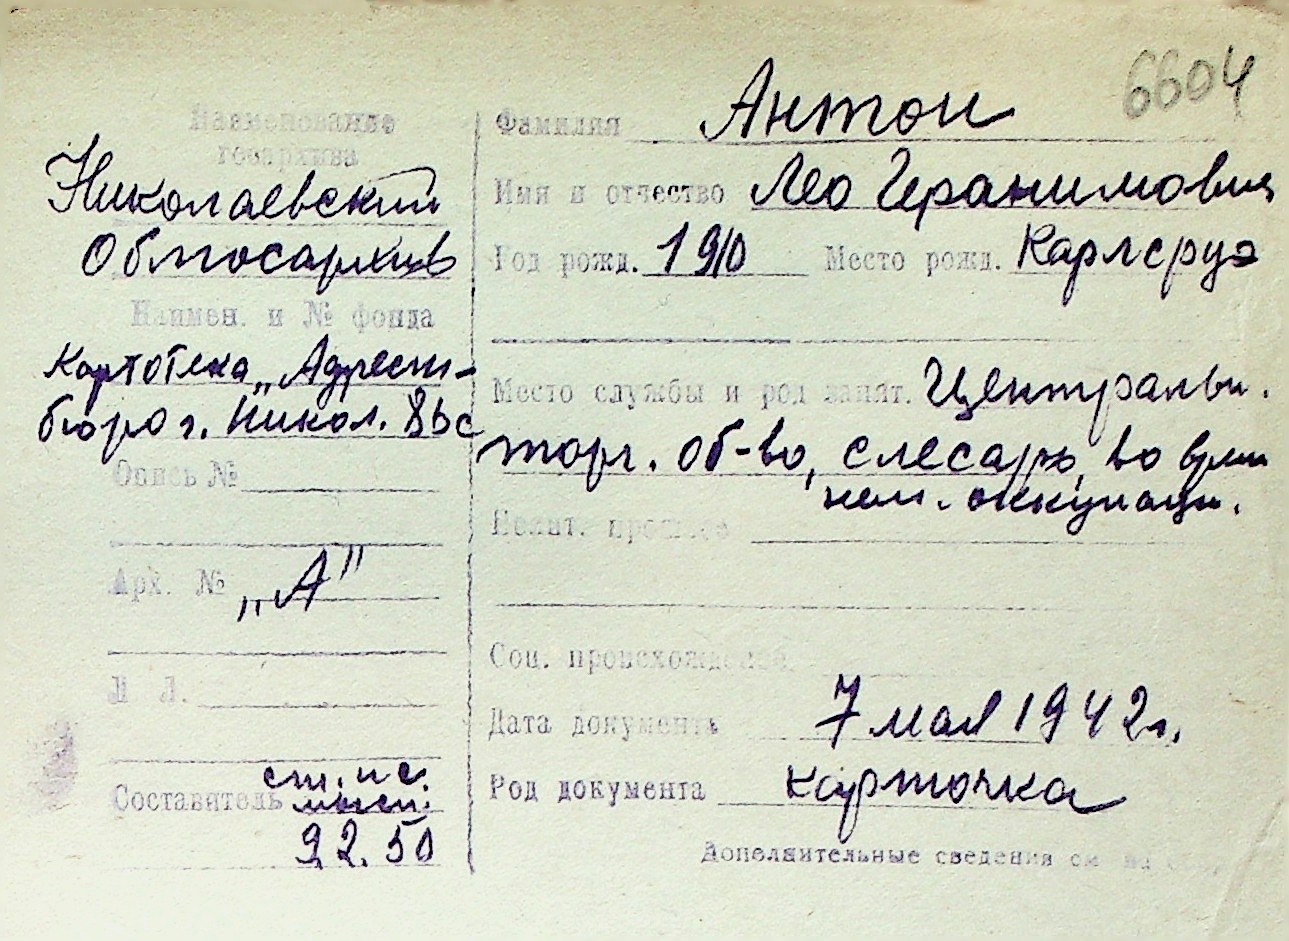 6604
Наименование
госархива
Николаевский
Облгосархив
Наимен. и № фонда
Картотека „Адресн-
бюро г. Никол.
Опись №
Арх. № „А"
Л Л.
Составитель ст. н с.
9 2. 50
Фамилия Антон
Имя и отчество Лео Геранимович
Год рожд. 1910 Место рожд. Карлсруэ
Место службы и род занят. Центральн.
торг. об-во, слесарь, во врем
нем. оккупаци.
Полит. прошлое
Соц. происхождений
Дата документа 7 мая 1942 г.
Род документа карточка
Дополнительные сведения см на